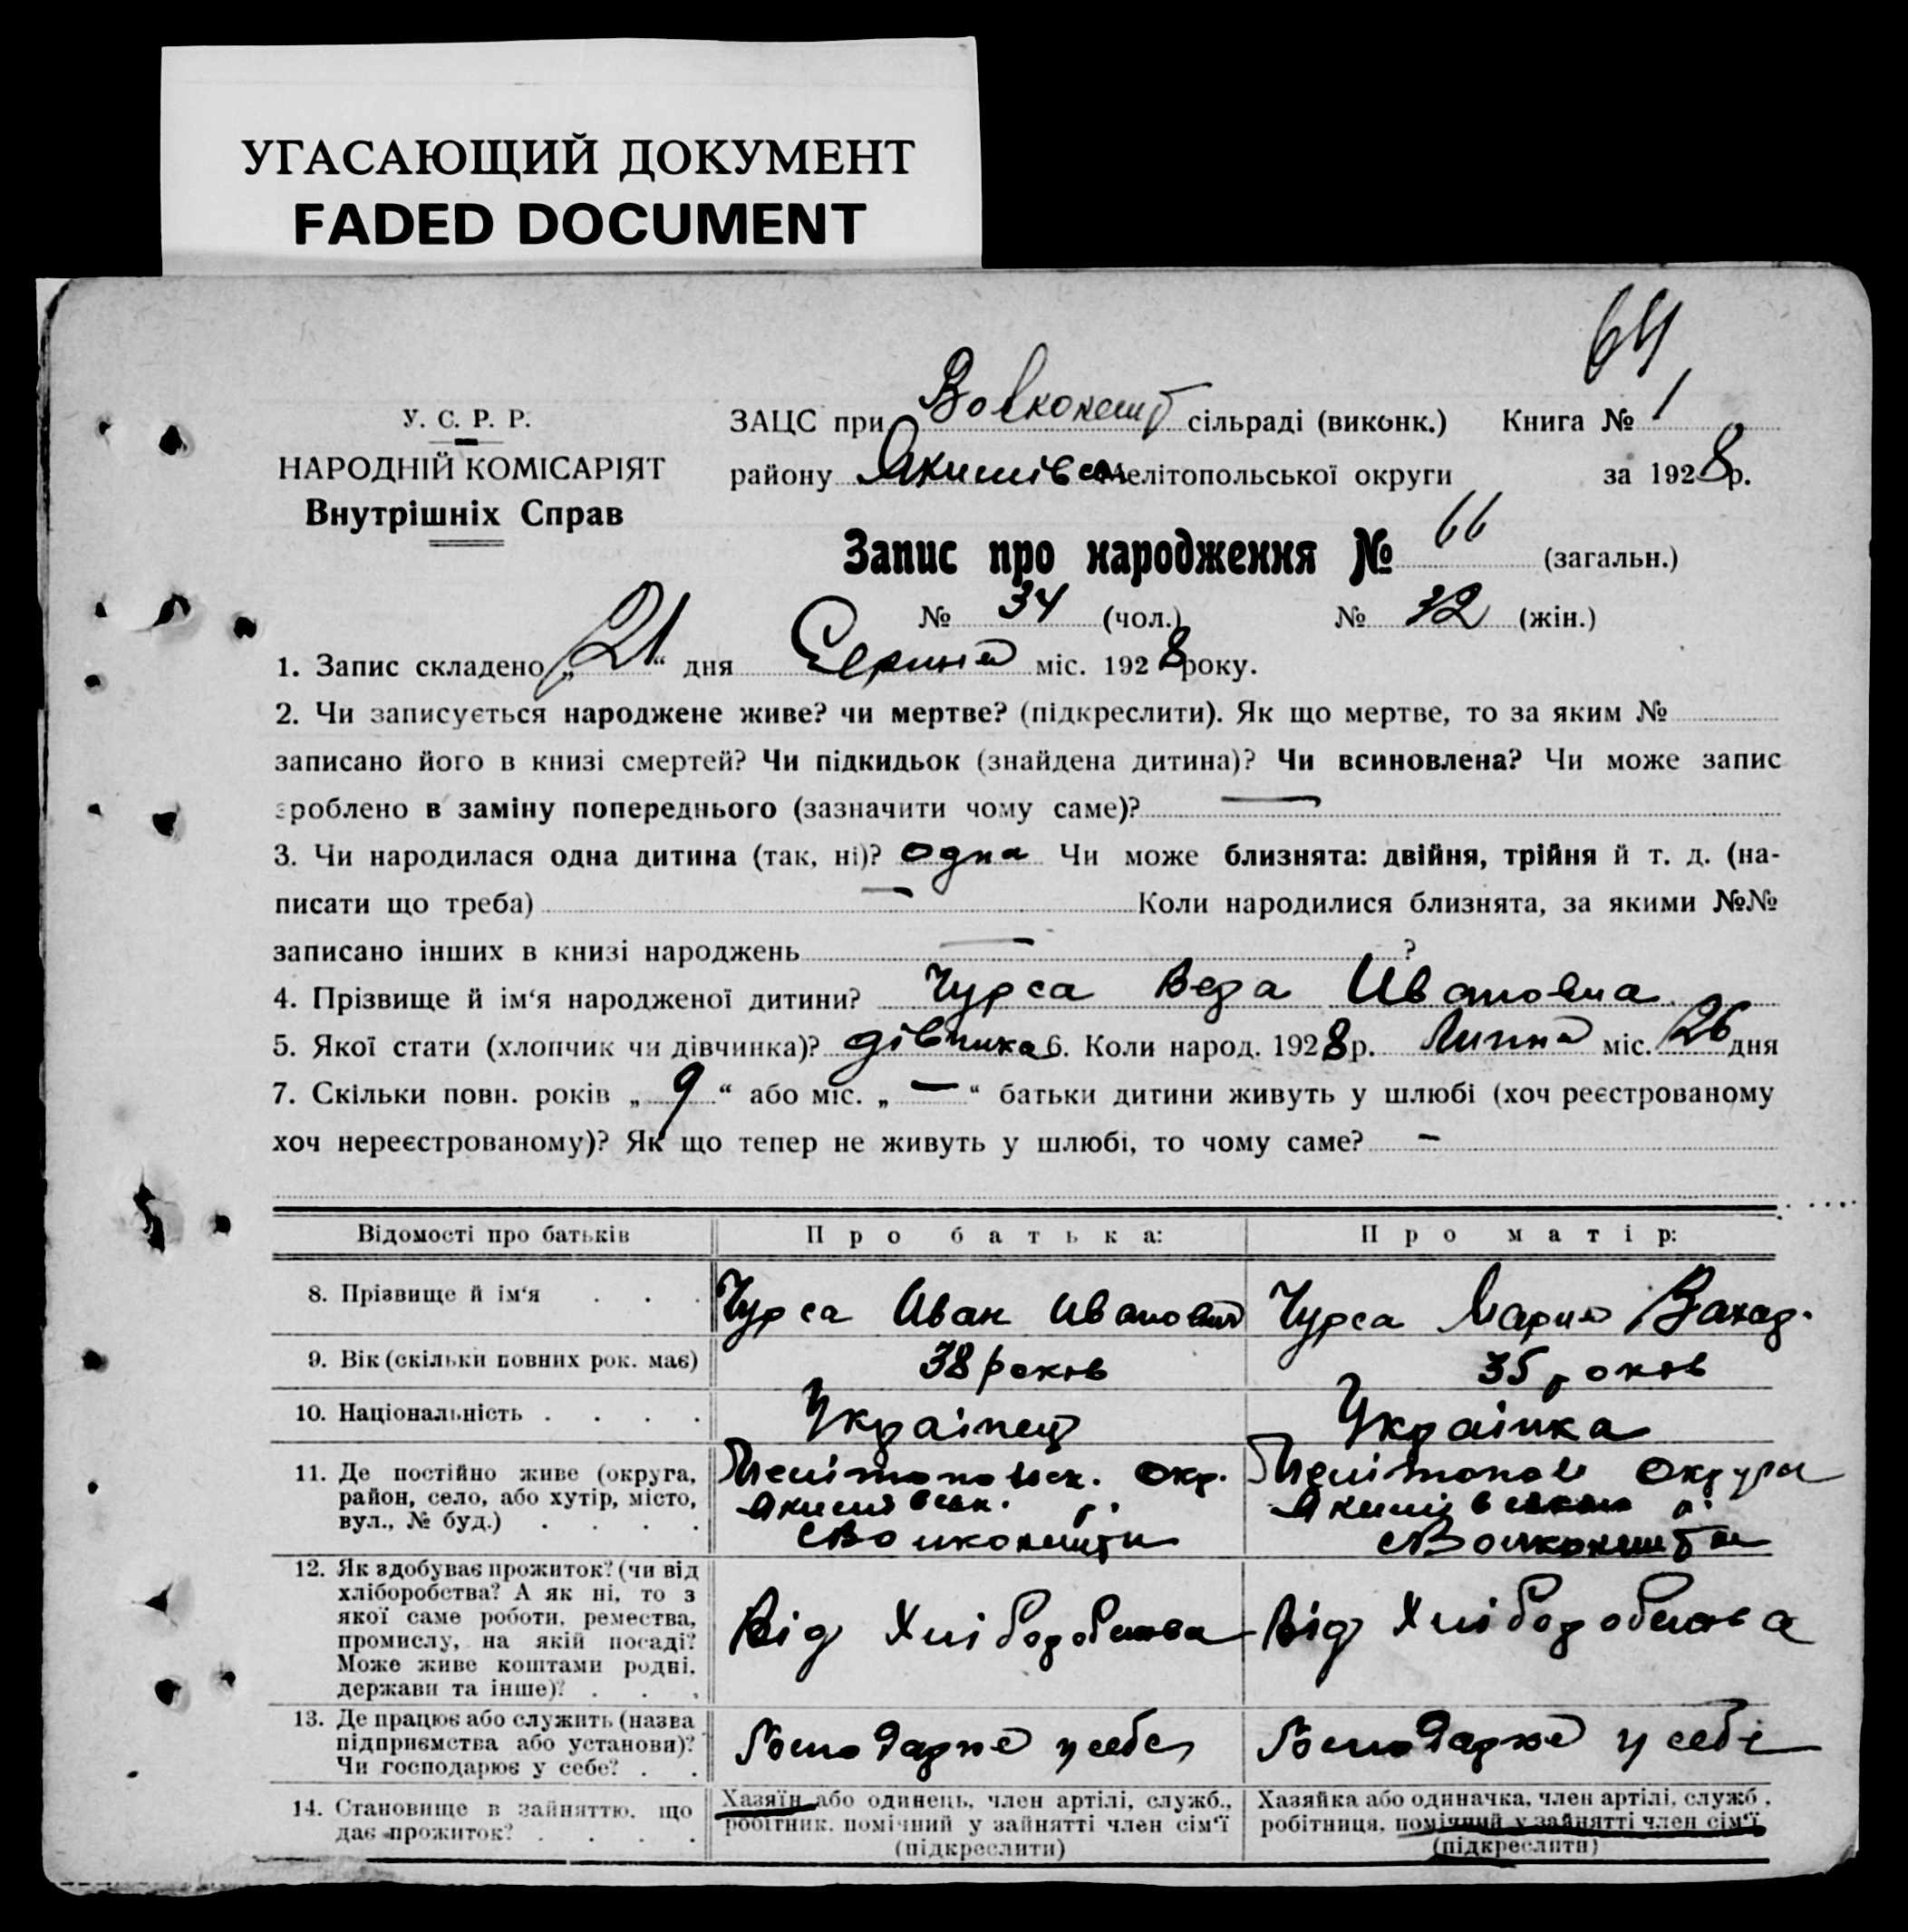 УГАСАЮЩИЙ ДОКУМЕНТ
FADED DOCUMENT
64
У. С. Р. Р.
НАРОДНІЙ КОМІСАРІЯТ
Внутрішніх Справ
ЗАЦС при Вовконешт сільраді (виконк.) Книга № 1
району Якимівськ Мелітопольської округи за 1928 р.
Запис про народження № 66 (загальн.)
№ 34 (чол.) № 32 (жін.)
1. Запис складено „21“ дня Серпня міс. 1928 року.
2. Чи записується народжене живе? чи мертве? (підкреслити). Як що мертве, то за яким №
записано його в книзі смертей? Чи підкидьок (знайдена дитина)? Чи всиновлена? Чи може запис
зроблено в заміну попереднього (зазначити чому саме)? —
3. Чи народилася одна дитина (так, ні)? одна Чи може близнята: двійня, трійня й т. д. (на-
писати що треба) — Коли народилися близнята, за якими №№
записано інших в книзі народжень — ?
4. Прізвище й ім‘я народженої дитини? Чурса Вера Ивановна
5. Якої стати (хлопчик чи дівчинка)? дівчинка 6. Коли народ. 1928 р. Липня міс. 26 дня
7. Скільки повн. років „9“ або міс. „—“ батьки дитини живуть у шлюбі (хоч реєстрованому
хоч нереєстрованому)? Як що тепер не живуть у шлюбі, то чому саме? —
Відомості про батьків Про батька: Про матір:
8. Прізвище й ім‘я . . . Чурса Иван Иванович Чурса Мария Захар.
9. Вік (скільки повних рок. має) 38 років 35 років
10. Національність . . . . Українец Українка
11. Де постійно живе (округа,
район, село, або хутір, місто,
вул., № буд.) . . . .
Мелітопольск. Окр.
Якимівськ. р.
Мелітополь Округи
р.
12. Як здобуває прожиток? (чи від
хліборобства? А як ні, то з
якої саме роботи, ремества,
промислу, на якій посаді?
Може живе коштами родні,
держави та інше)? . . .
Від Хліборобства
Від Хліборобства
13. Де працює або служить (назва
підприємства або установи)?
Чи господарює у себе? . .
Господарює у себе
Господарює у себе
14. Становище в зайняттю, що
дає прожиток? . . . .
Хазяїн або одинець, член артілі, служб.,
робітник, помічний у зайнятті член сім‘ї
(підкреслити)
Хазяйка або одиначка, член артілі, служб.,
робітниця, помічний у зайнятті член сім‘ї
(підкреслити)